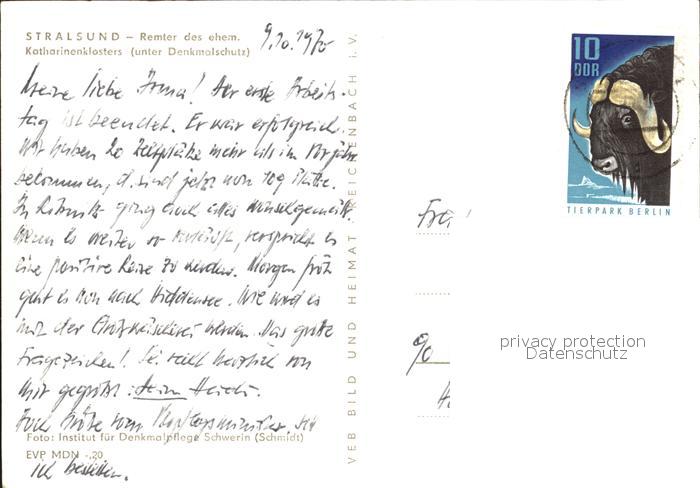 STRALSUND – Remter des ehem.
Katharinenklosters (unter Denkmalschutz)
9.10.1970
Meine liebe Irma! Der erste Arbeits-
tag ist beendet. Er war erfolgreich.
Wir haben 20 Zeltplätze mehr als im Vorjahr
bekommen, d. sind jetzt Plätze.
In ging auch alles wunschgemäß.
Wenn es weiter so verläuft, verspricht es
eine positive Reise zu werden. Morgen früh
geht es nun nach Hiddensee. Wie wird es
mit der werden. Das große
Fragezeichen! Sei recht herzlich von
mir gegrüßt: dein
Auch Grüße vom soll
ich bestellen.
Foto: Institut für Denkmalpflege Schwerin (Schmidt)
EVP MDN -,20
VEB BILD UND HEIMAT REICHENBACH i. V.
10
DDR
TIERPARK BERLIN
privacy protection
Datenschutz